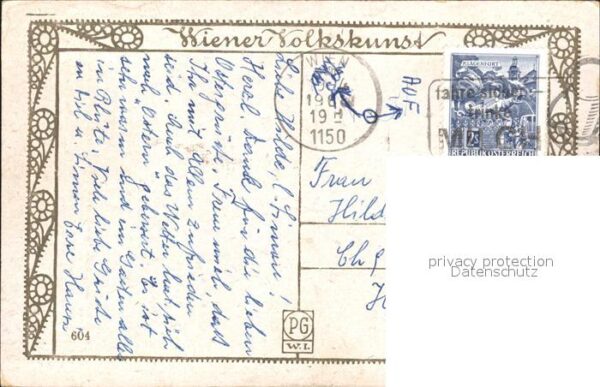 Wiener Volkskunst
Liebe Hilde, l. Simon!
Herzl. Dank für d'e lieben
Ostergrüße. Freue mich, daß
Ihr mit Allem zufrieden
seid. Auch das Wetter hat sich
nach Ostern gebessert. Es ist
sehr warm und im Garten alles
in Blüte. Viele liebe Grüße
an Dich u. Simon Eure
604
19
1150
AUF
KLAGENFURT
REPUBLIK ÖSTERREICH
Frau
Hild
PG
W.I.
privacy protection
Datenschutz